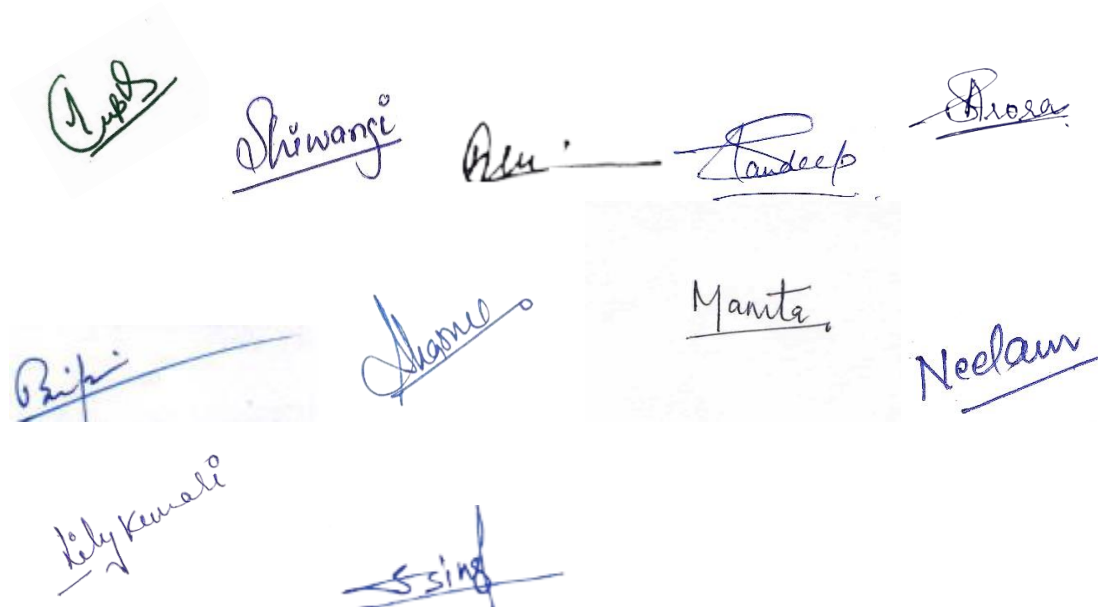 Gupta
Shiwangi
Sandeep
Arora
Bipin
Sharma
Manita
Neelam
Lily Kumari
S singh